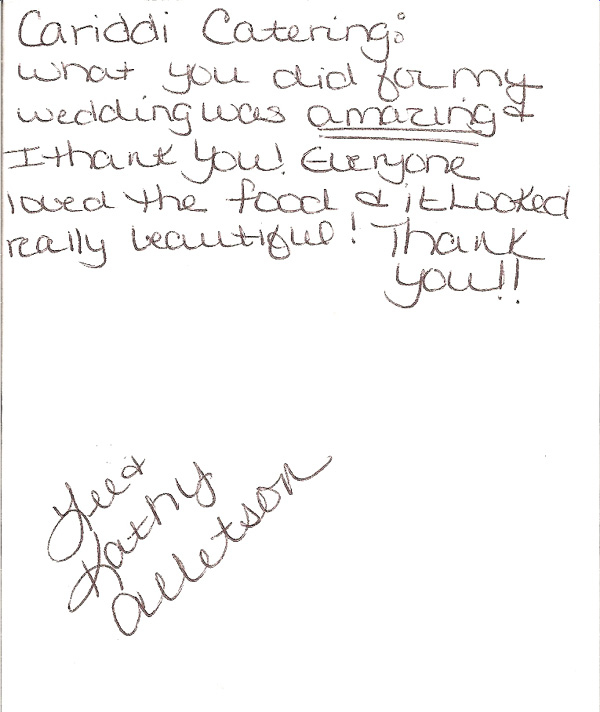 Cariddi Catering:
What you did for my
wedding was amazing &
I thank you! Everyone
loved the food & it looked
really beautiful! Thank
you!!
Lee &
Kathy
Alletson